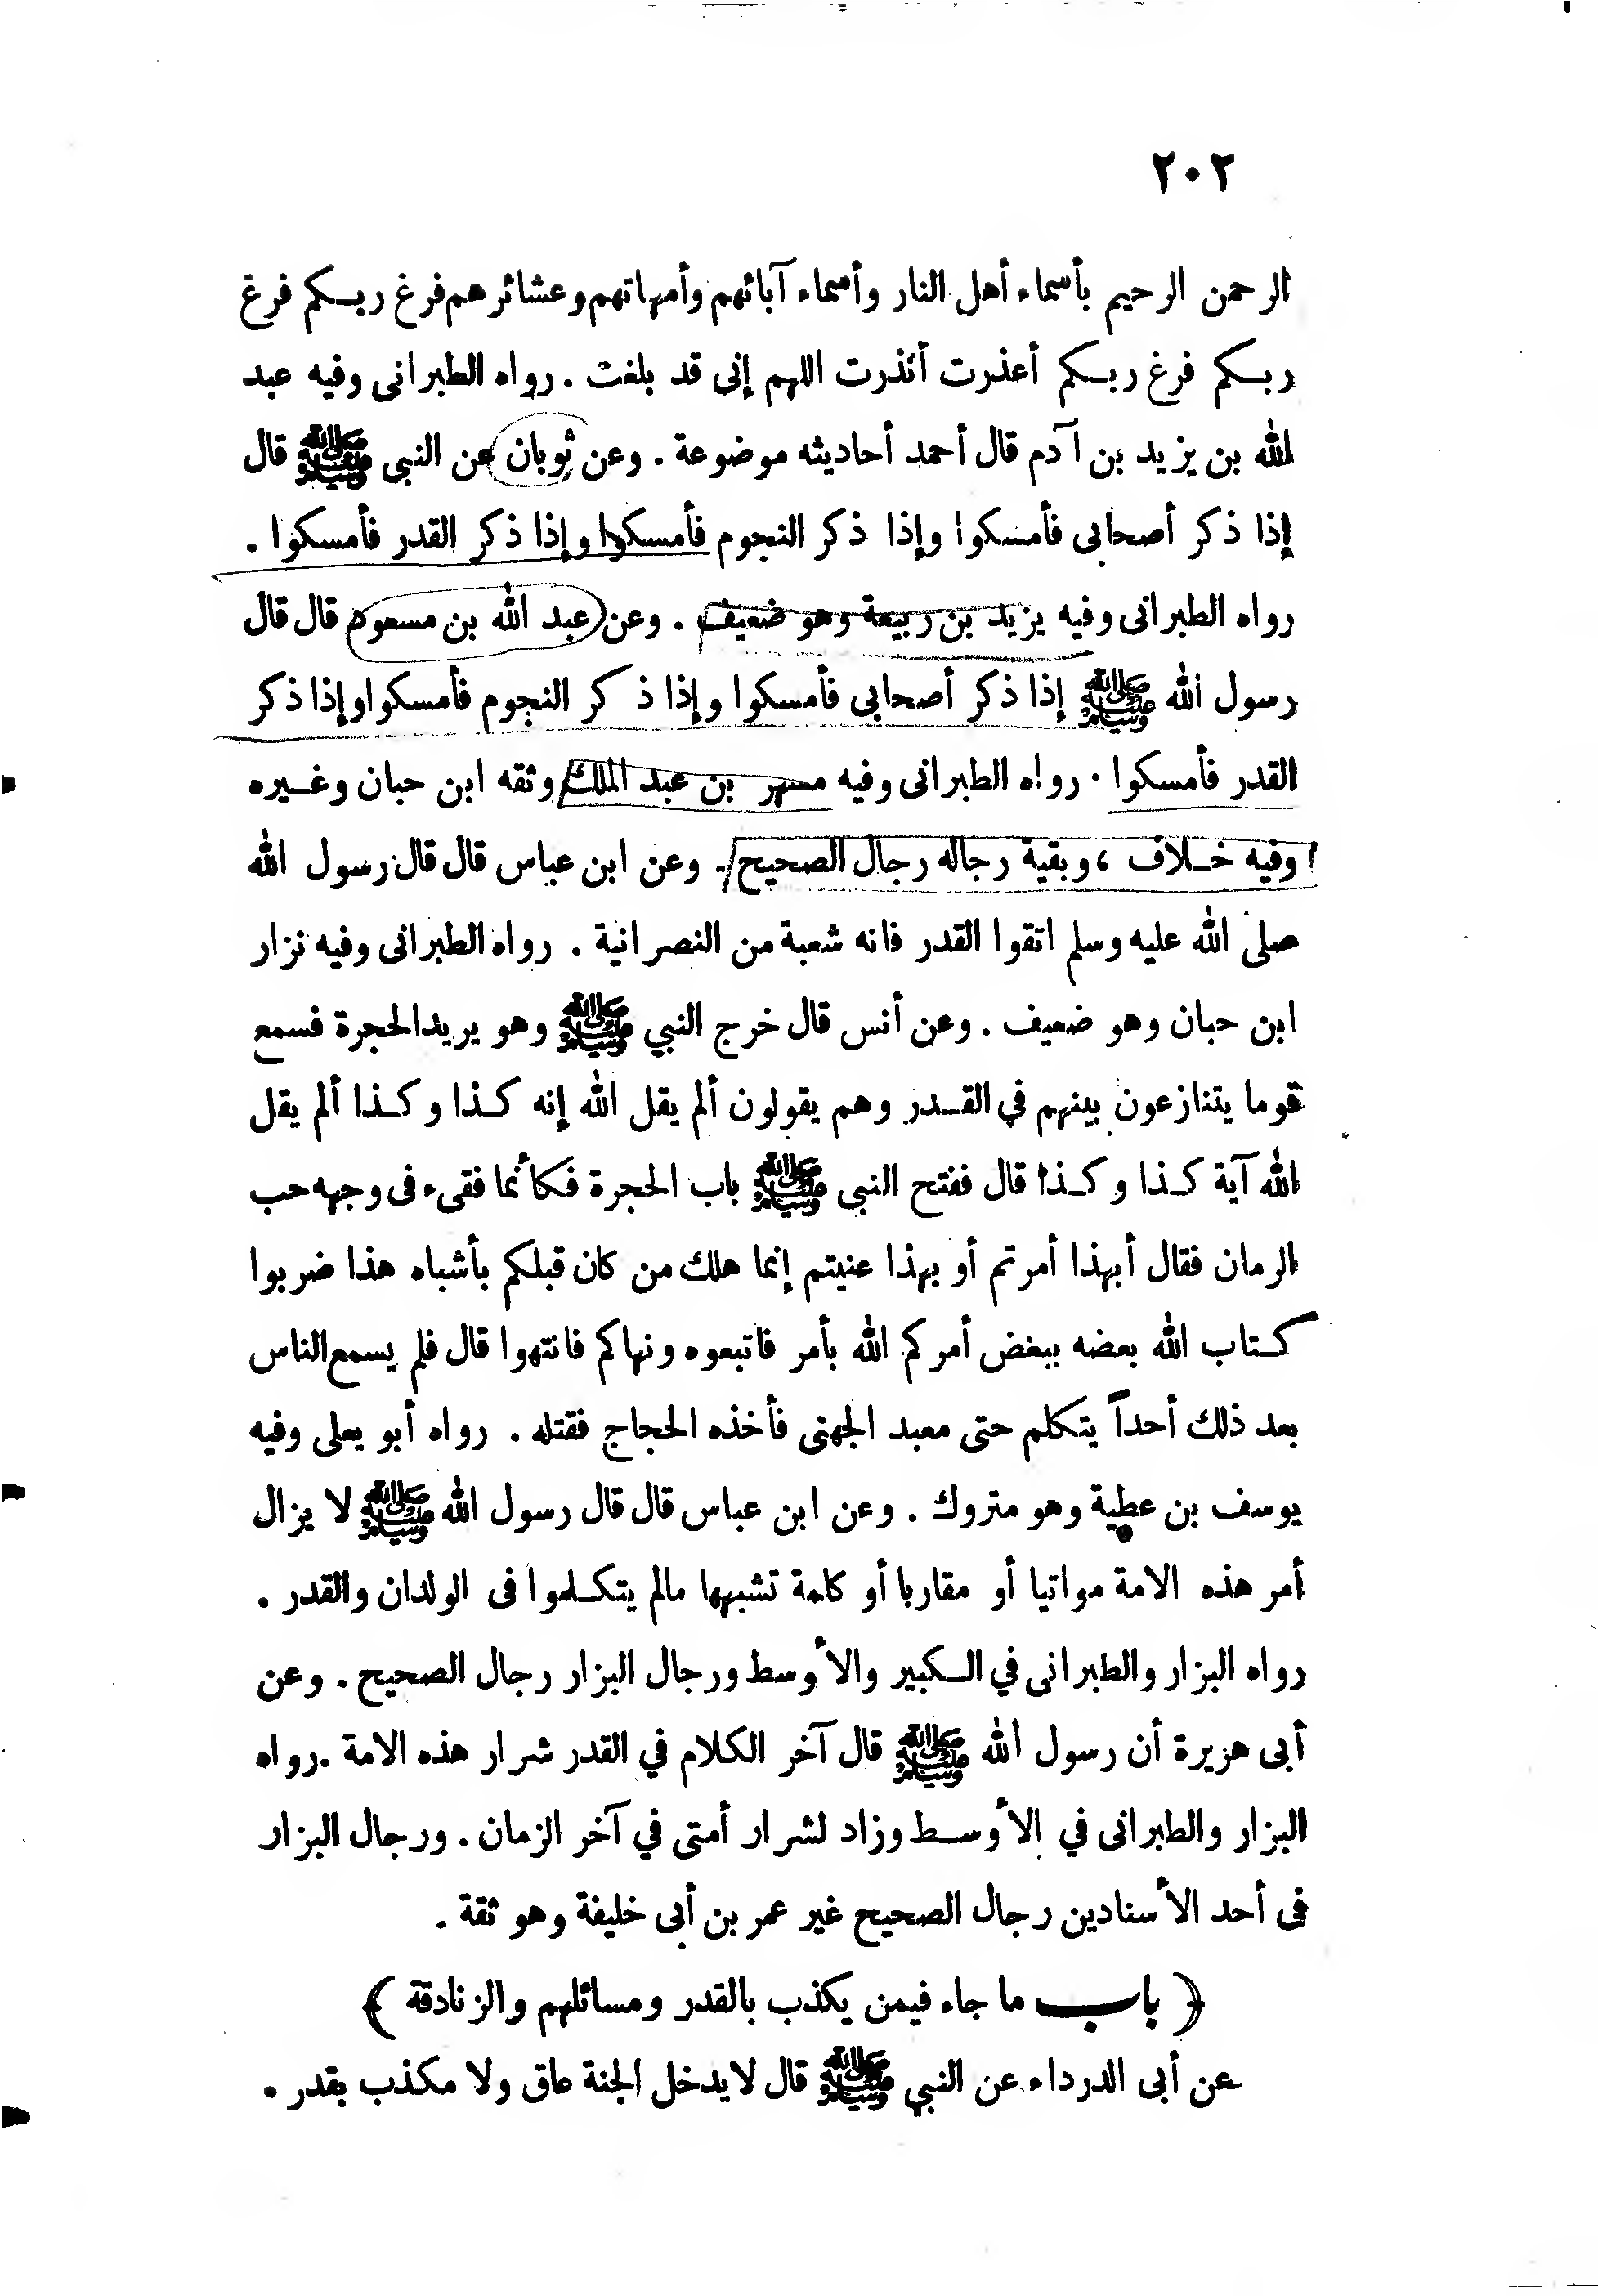 ٢٠٢
الرحمن الرحيم بأسماء أهل النار وأسماء آبائهم وأمهاتهم وعشائرهم فرغ ربكم فرغ
ربكم فرغ ربكم أعذرت أنذرت اللهم إنى قد بلغت . رواه الطبرانى وفيه عبد
الله بن يزيد بن آدم قال أحمد أحاديثه موضوعة . وعن ثوبان عن النبى ﷺ قال
إذا ذكر أصحابى فأمسكوا وإذا ذكر النجوم فأمسكوا وإذا ذكر القدر فأمسكوا .
رواه الطبرانى وفيه يزيد بن ربيعة وهو ضعيف . وعن عبد الله بن مسعود قال قال
رسول الله ﷺ إذا ذكر أصحابى فأمسكوا وإذا ذكر النجوم فأمسكوا وإذا ذكر
القدر فأمسكوا . رواه الطبرانى وفيه مسهر بن عبد الملك وثقه ابن حبان وغيره
وفيه خلاف ، وبقية رجاله رجال الصحيح . وعن ابن عباس قال قال رسول الله
صلى الله عليه وسلم اتقوا القدر فانه شعبة من النصرانية . رواه الطبرانى وفيه نزار
ابن حبان وهو ضعيف . وعن أنس قال خرج النبي ﷺ وهو يريد الحجرة فسمع
قوما يتنازعون بينهم في القدر وهم يقولون ألم يقل الله إنه كذا وكذا ألم يقل
الله آية كذا وكذا قال ففتح النبى ﷺ باب الحجرة فكأنما فقىء فى وجهه حب
الرمان فقال أبهذا أمرتم أو بهذا عنيتم إنما هلك من كان قبلكم بأشباه هذا ضربوا
كتاب الله بعضه ببعض أمركم الله بأمر فاتبعوه ونهاكم فانتهوا قال فلم يسمع الناس
بعد ذلك أحداً يتكلم حتى معبد الجهنى فأخذه الحجاج فقتله . رواه أبو يعلى وفيه
يوسف بن عطية وهو متروك . وعن ابن عباس قال قال رسول الله ﷺ لا يزال
أمر هذه الامة مواتيا أو مقاربا أو كلمة تشبهها مالم يتكلموا فى الولدان والقدر .
رواه البزار والطبرانى في الكبير والأوسط ورجال البزار رجال الصحيح . وعن
أبى هريرة أن رسول الله ﷺ قال آخر الكلام في القدر شرار هذه الامة . رواه
البزار والطبرانى في الأوسط وزاد لشرار أمتى في آخر الزمان . ورجال البزار
فى أحد الأسنادين رجال الصحيح غير عمر بن أبى خليفة وهو ثقة .
﴿ باب ما جاء فيمن يكذب بالقدر ومسائلهم والزنادقة ﴾
عن أبى الدرداء عن النبي ﷺ قال لا يدخل الجنة عاق ولا مكذب بقدر .